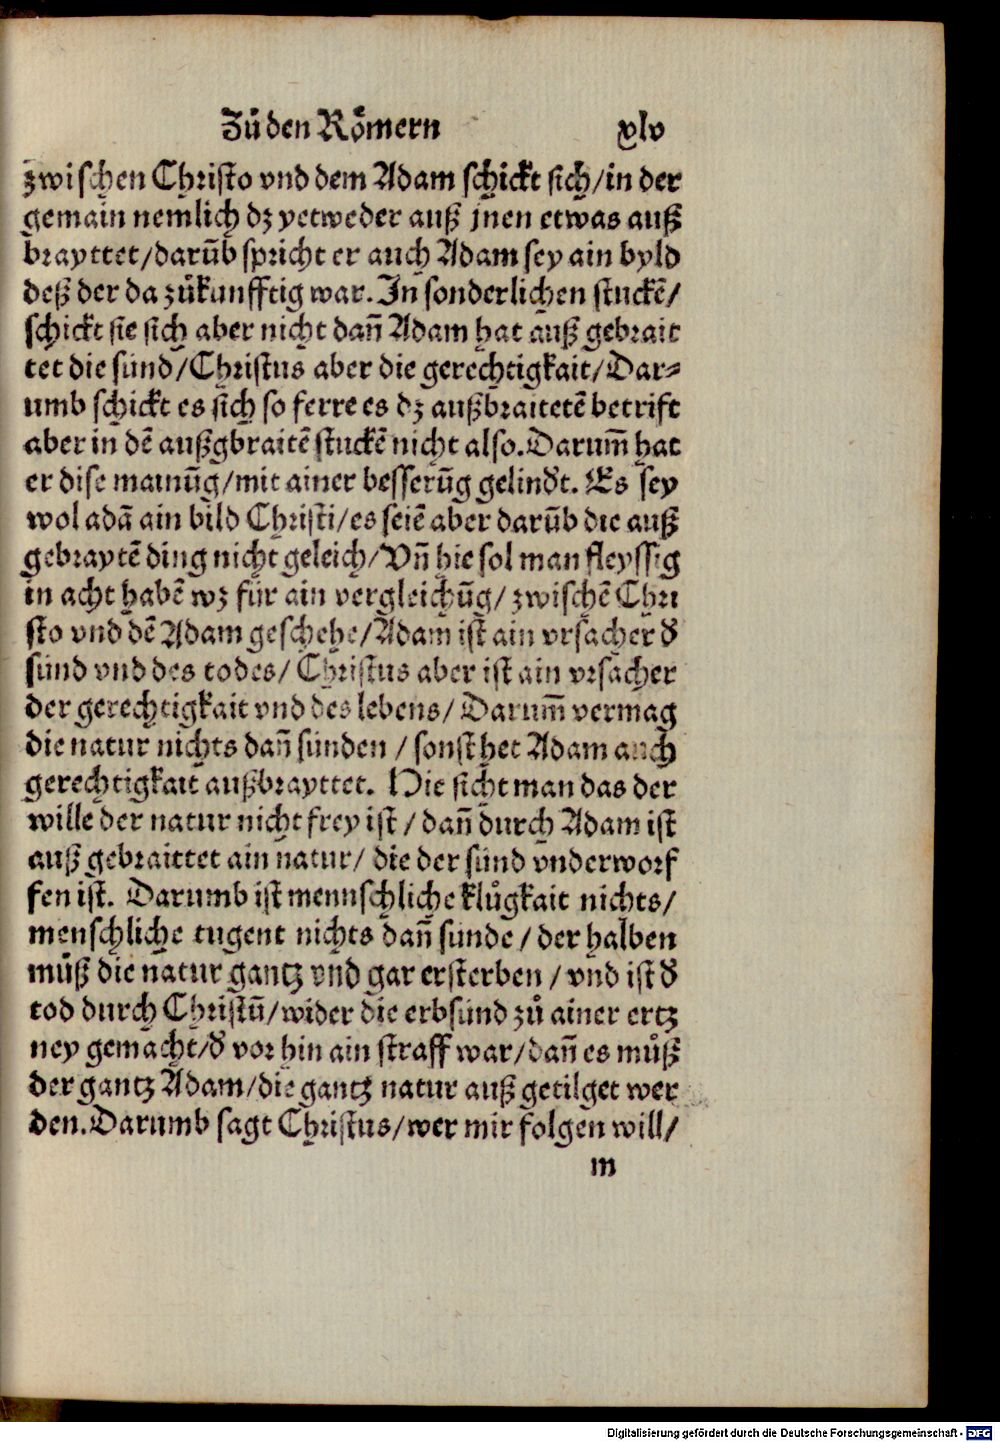 Zuͦ den Roͤmern xlv
zwischen Christo vnd dem Adam schickt sich/in der
gemain nemlich dz yetweder auß jnen etwas auß
brayttet/darūb spricht er auch Adam sey ain byld
deß der da zuͦkunfftig war. In sonderlichen stuckē/
schickt sie sich aber nicht dañ Adam hat auß gebrait
tet die sünd/Christus aber die gerechtigkait/Dar⸗
umb schickt es sich so ferre es dz außbraitetē betrift
aber in dē außgbraitē stuckē nicht also. Darum̄ hat
er dise mainūg/mit ainer besserūg gelindt. Es sey
wol adā ain bild Christi/es seiē aber darūb die auß
gebraytē ding nicht geleich/Vñ hie sol man fleyssig
in acht habē wz für ain vergleichūg/zwischē Chri
sto vnd dē Adam geschehe/Adam ist ain vrsacher d̕
sünd vnd des todes/Christus aber ist ain vrsacher
der gerechtigkait vnd des lebens/Darum̄ vermag
die natur nichts dañ sünden/sonst het Adam auch
gerechtigkait außbrayttet. Hie sicht man das der
wille der natur nicht frey ist/dañ durch Adam ist
auß gebraittet ain natur/die der sünd vnderworf
fen ist. Darumb ist mennschliche kluͦgkait nichts/
menschliche tugent nichts dañ sünde/der halben
muͦß die natur gantz vnd gar ersterben/vnd ist d̕
tod durch Christū/wider die erbsünd zuͦ ainer ertz
ney gemacht/d̕ vor hin ain straff war/dañ es muͦß
der gantz Adam/die gantz natur auß getilget wer
den. Darumb sagt Christus/wer mir folgen will/
m
Digitalisierung gefördert durch die Deutsche Forschungsgemeinschaft - DFG